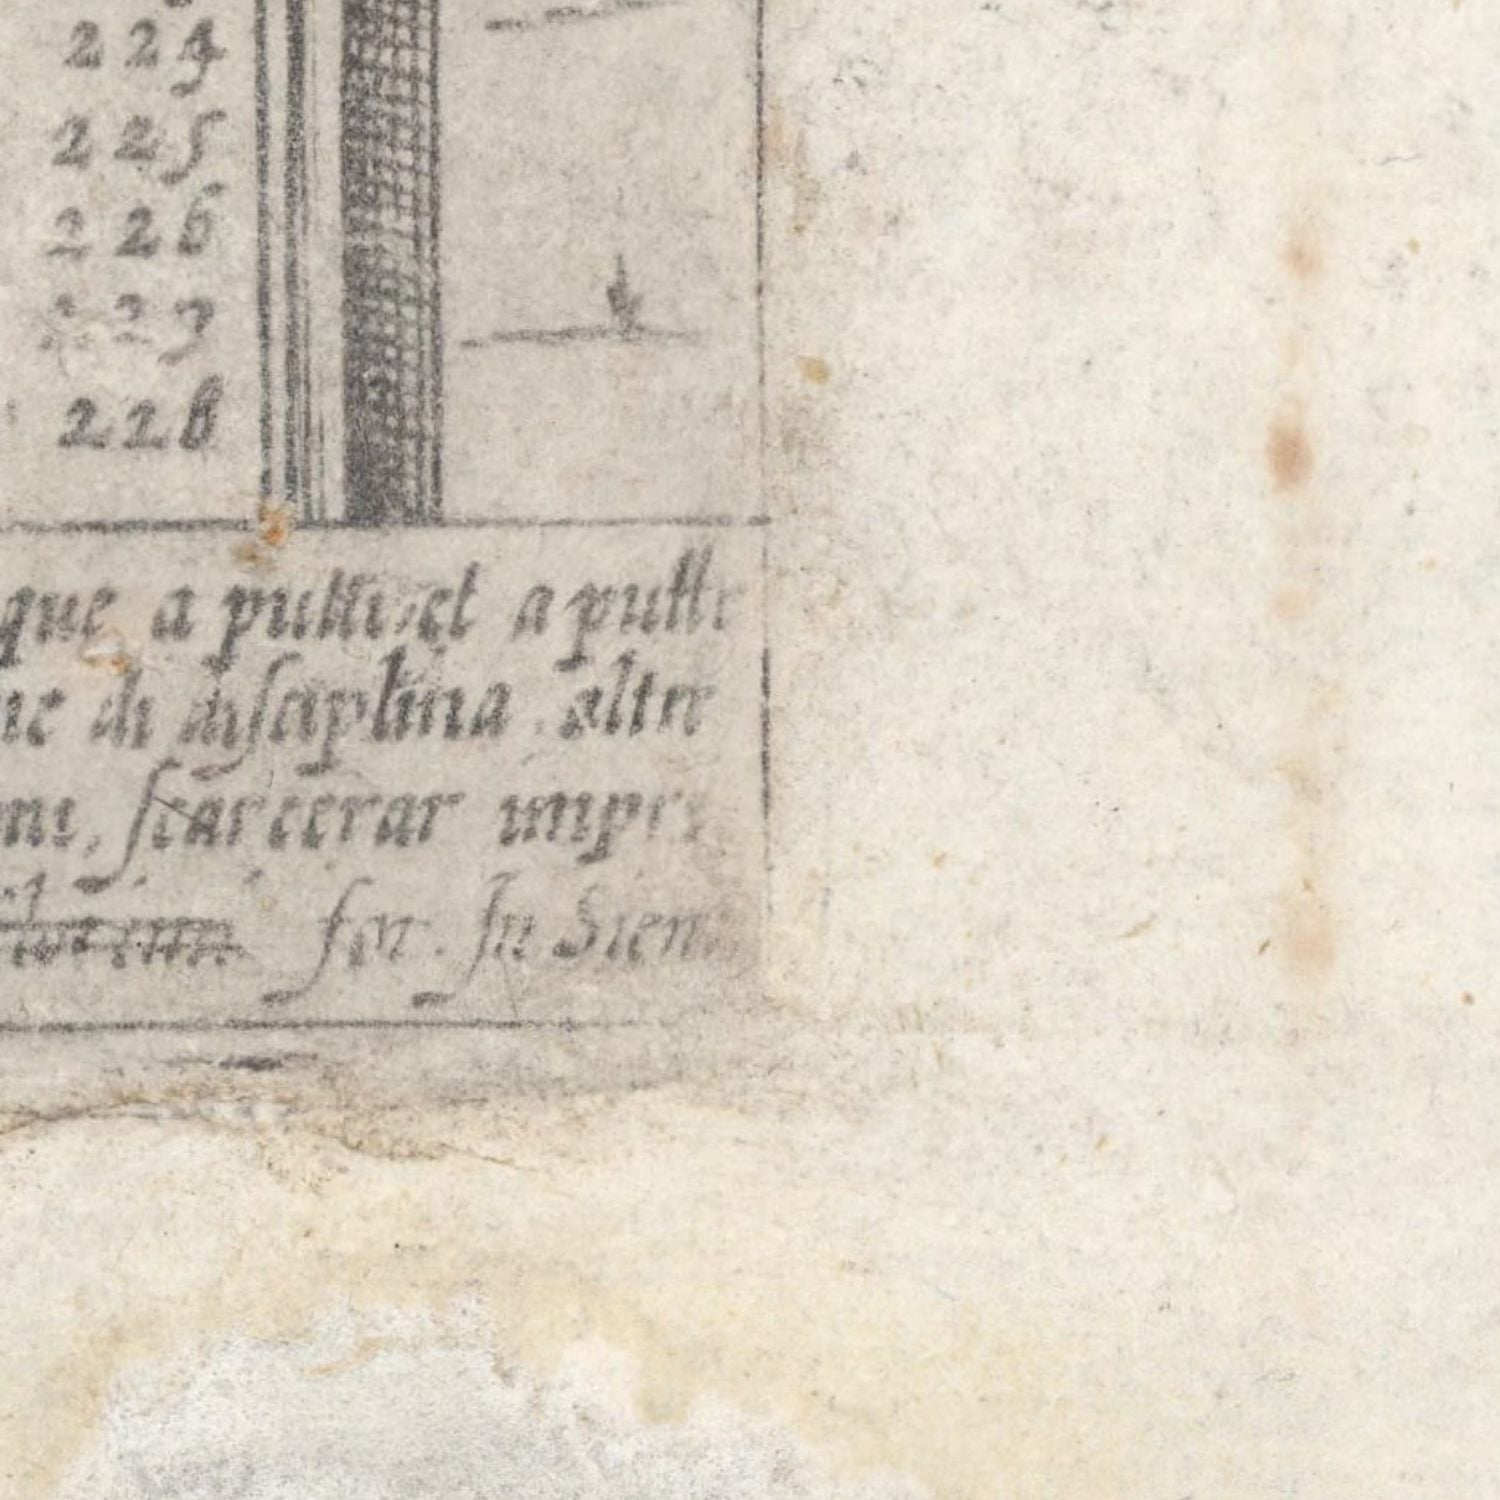 224
225
226
227
228
que a putti, et a putte
di disciplina oltre
scarcerar
for. In Siena